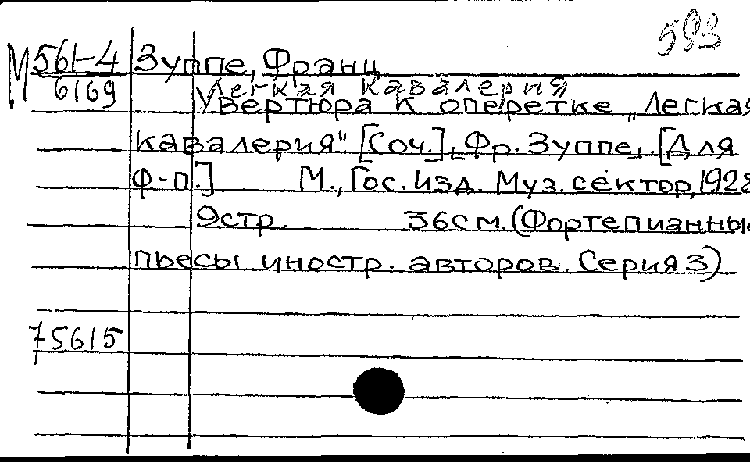 593
М 561-4 Зуппе, Франц
6169 Легкая кавалерия
Увертюра к оперетке „Легкая
кавалерия" [Соч.] Фр. Зуппе. [Для
ф-п.] М., Гос. изд. Муз. сектор, 1928
9 стр. 36 см. (Фортепианны
пьесы иностр. авторов. Серия 3)
75615